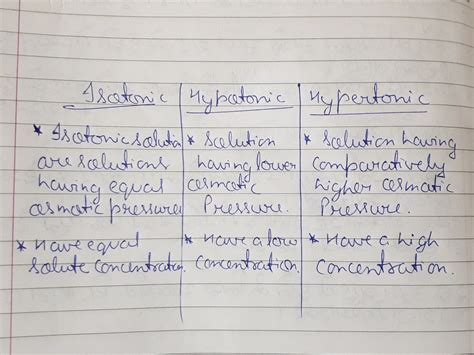 Isotonic
Hypotonic
Hypertonic
* Isotonic solution
are solutions
having equal
osmotic pressure
* Solution
having lower
osmotic
Pressure.
* Solution having
comparatively
higher osmotic
Pressure.
* Have equal
solute concentration.
* Have a low
concentration.
* Have a high
concentration.